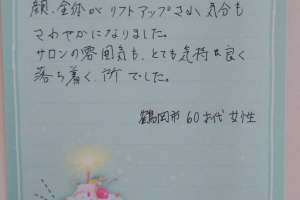 顔、全体がリフトアップされ、気分も
さわやかになりました。
サロンの雰囲気も、とても気持ち良く
落ち着く所でした。
鶴岡市 60才代 女性